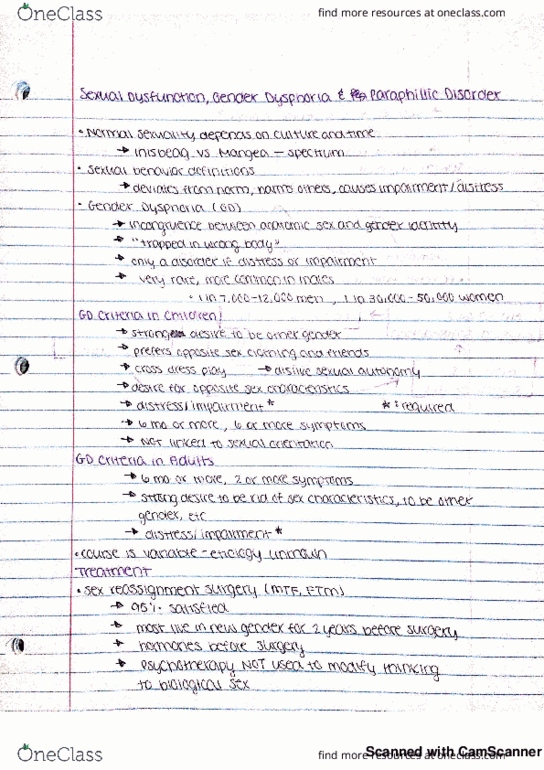 OneClass
find more resources at oneclass.com
Sexual Dysfunction, Gender Dysphoria & Paraphillic Disorder
• Normal sexuality depends on culture and time
→ Inisbeag vs Mangea – spectrum
• Sexual behavior definitions
→ deviates from norm, harms others, causes impairment/distress
• Gender Dysphoria (GD)
→ incongruence between anatomic sex and gender identity
→ "trapped in wrong body"
→ only a disorder if distress or impairment
→ very rare, more common in males
• 1 in 7,000-12,000 men, 1 in 30,000-50,000 women
GD Criteria in Children
→ strong desire to be other gender
→ prefers opposite sex clothing and friends
→ cross dress play → dislike sexual autonomy
→ desire for opposite sex characteristics
→ distress/impairment* *: required
→ 6 mo or more, 6 or more symptoms
→ NOT linked to sexual orientation
GD Criteria in Adults
→ 6 mo or more, 2 or more symptoms
→ strong desire to be rid of sex characteristics, to be other
gender, etc
→ distress/impairment *
• course is variable - etiology unknown
Treatment
• sex reassignment surgery (MTF, FTM)
→ 95% satisfied
→ most live in new gender for 2 years before surgery
→ hormones before surgery
→ psychotherapy NOT used to modify thinking
to biological sex
OneClass
find more resources at oneclass.com
Scanned with CamScanner